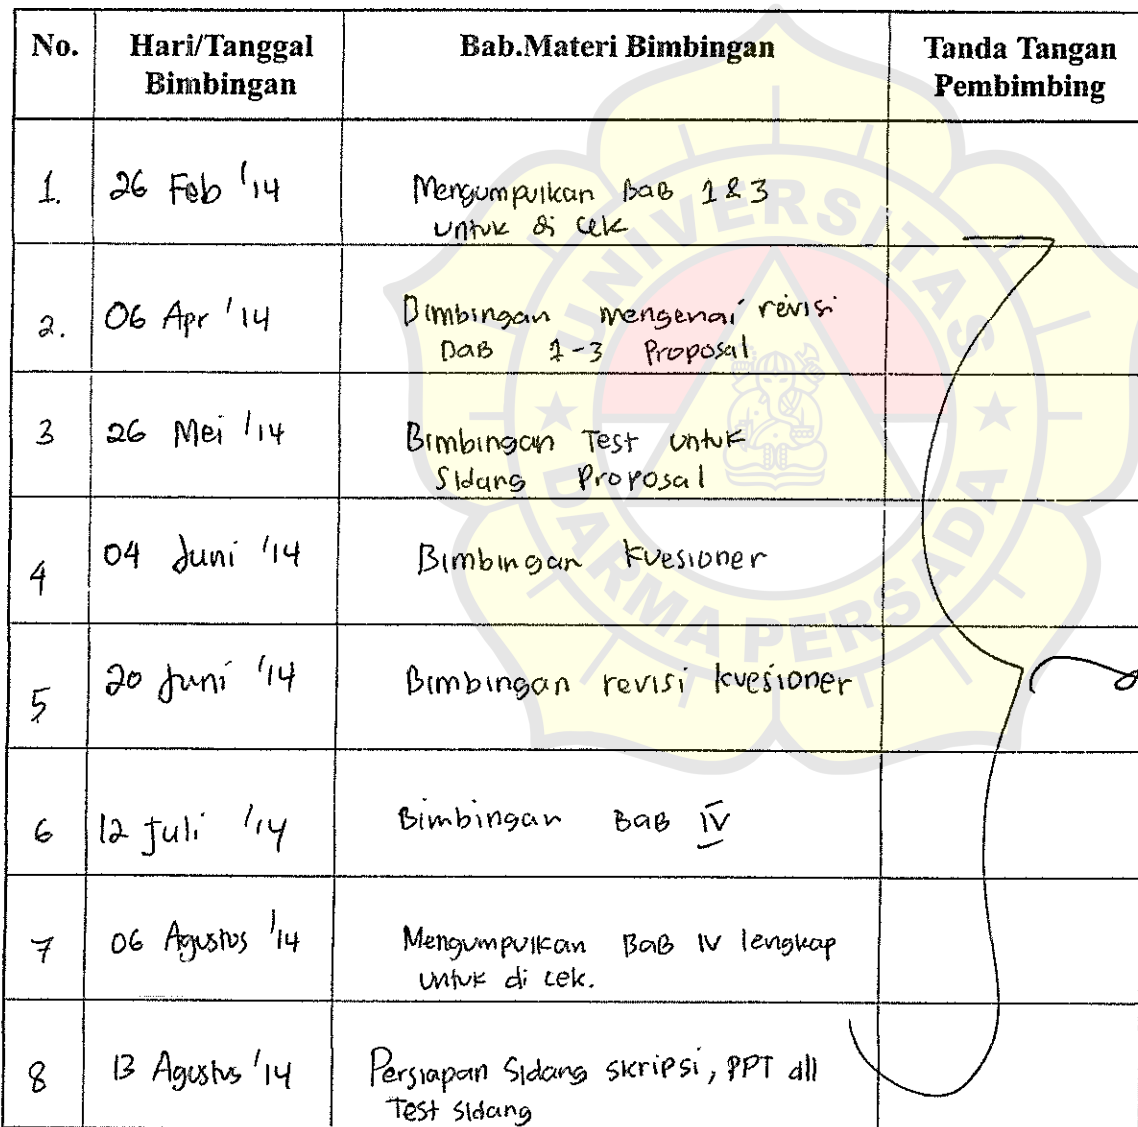 No. Hari/Tanggal Bab.Materi Bimbingan Tanda Tangan
Bimbingan Pembimbing
1. 26 Feb '14 Mengumpulkan BaB 1 & 3
untuk di cek
2. 06 Apr '14 Bimbingan mengenai revisi
BaB 1-3 Proposal
3 26 Mei '14 Bimbingan Test untuk
Sidang Proposal
4 04 Juni '14 Bimbingan kuesioner
5 20 Juni '14 Bimbingan revisi kuesioner
6 12 Juli '14 Bimbingan BaB IV
7 06 Agustus '14 Mengumpulkan BaB IV lengkap
untuk di cek.
8 13 Agustus '14 Persiapan Sidang skripsi, PPT dll
Test sidang
UNIVERSITAS
DARMA PERSADA